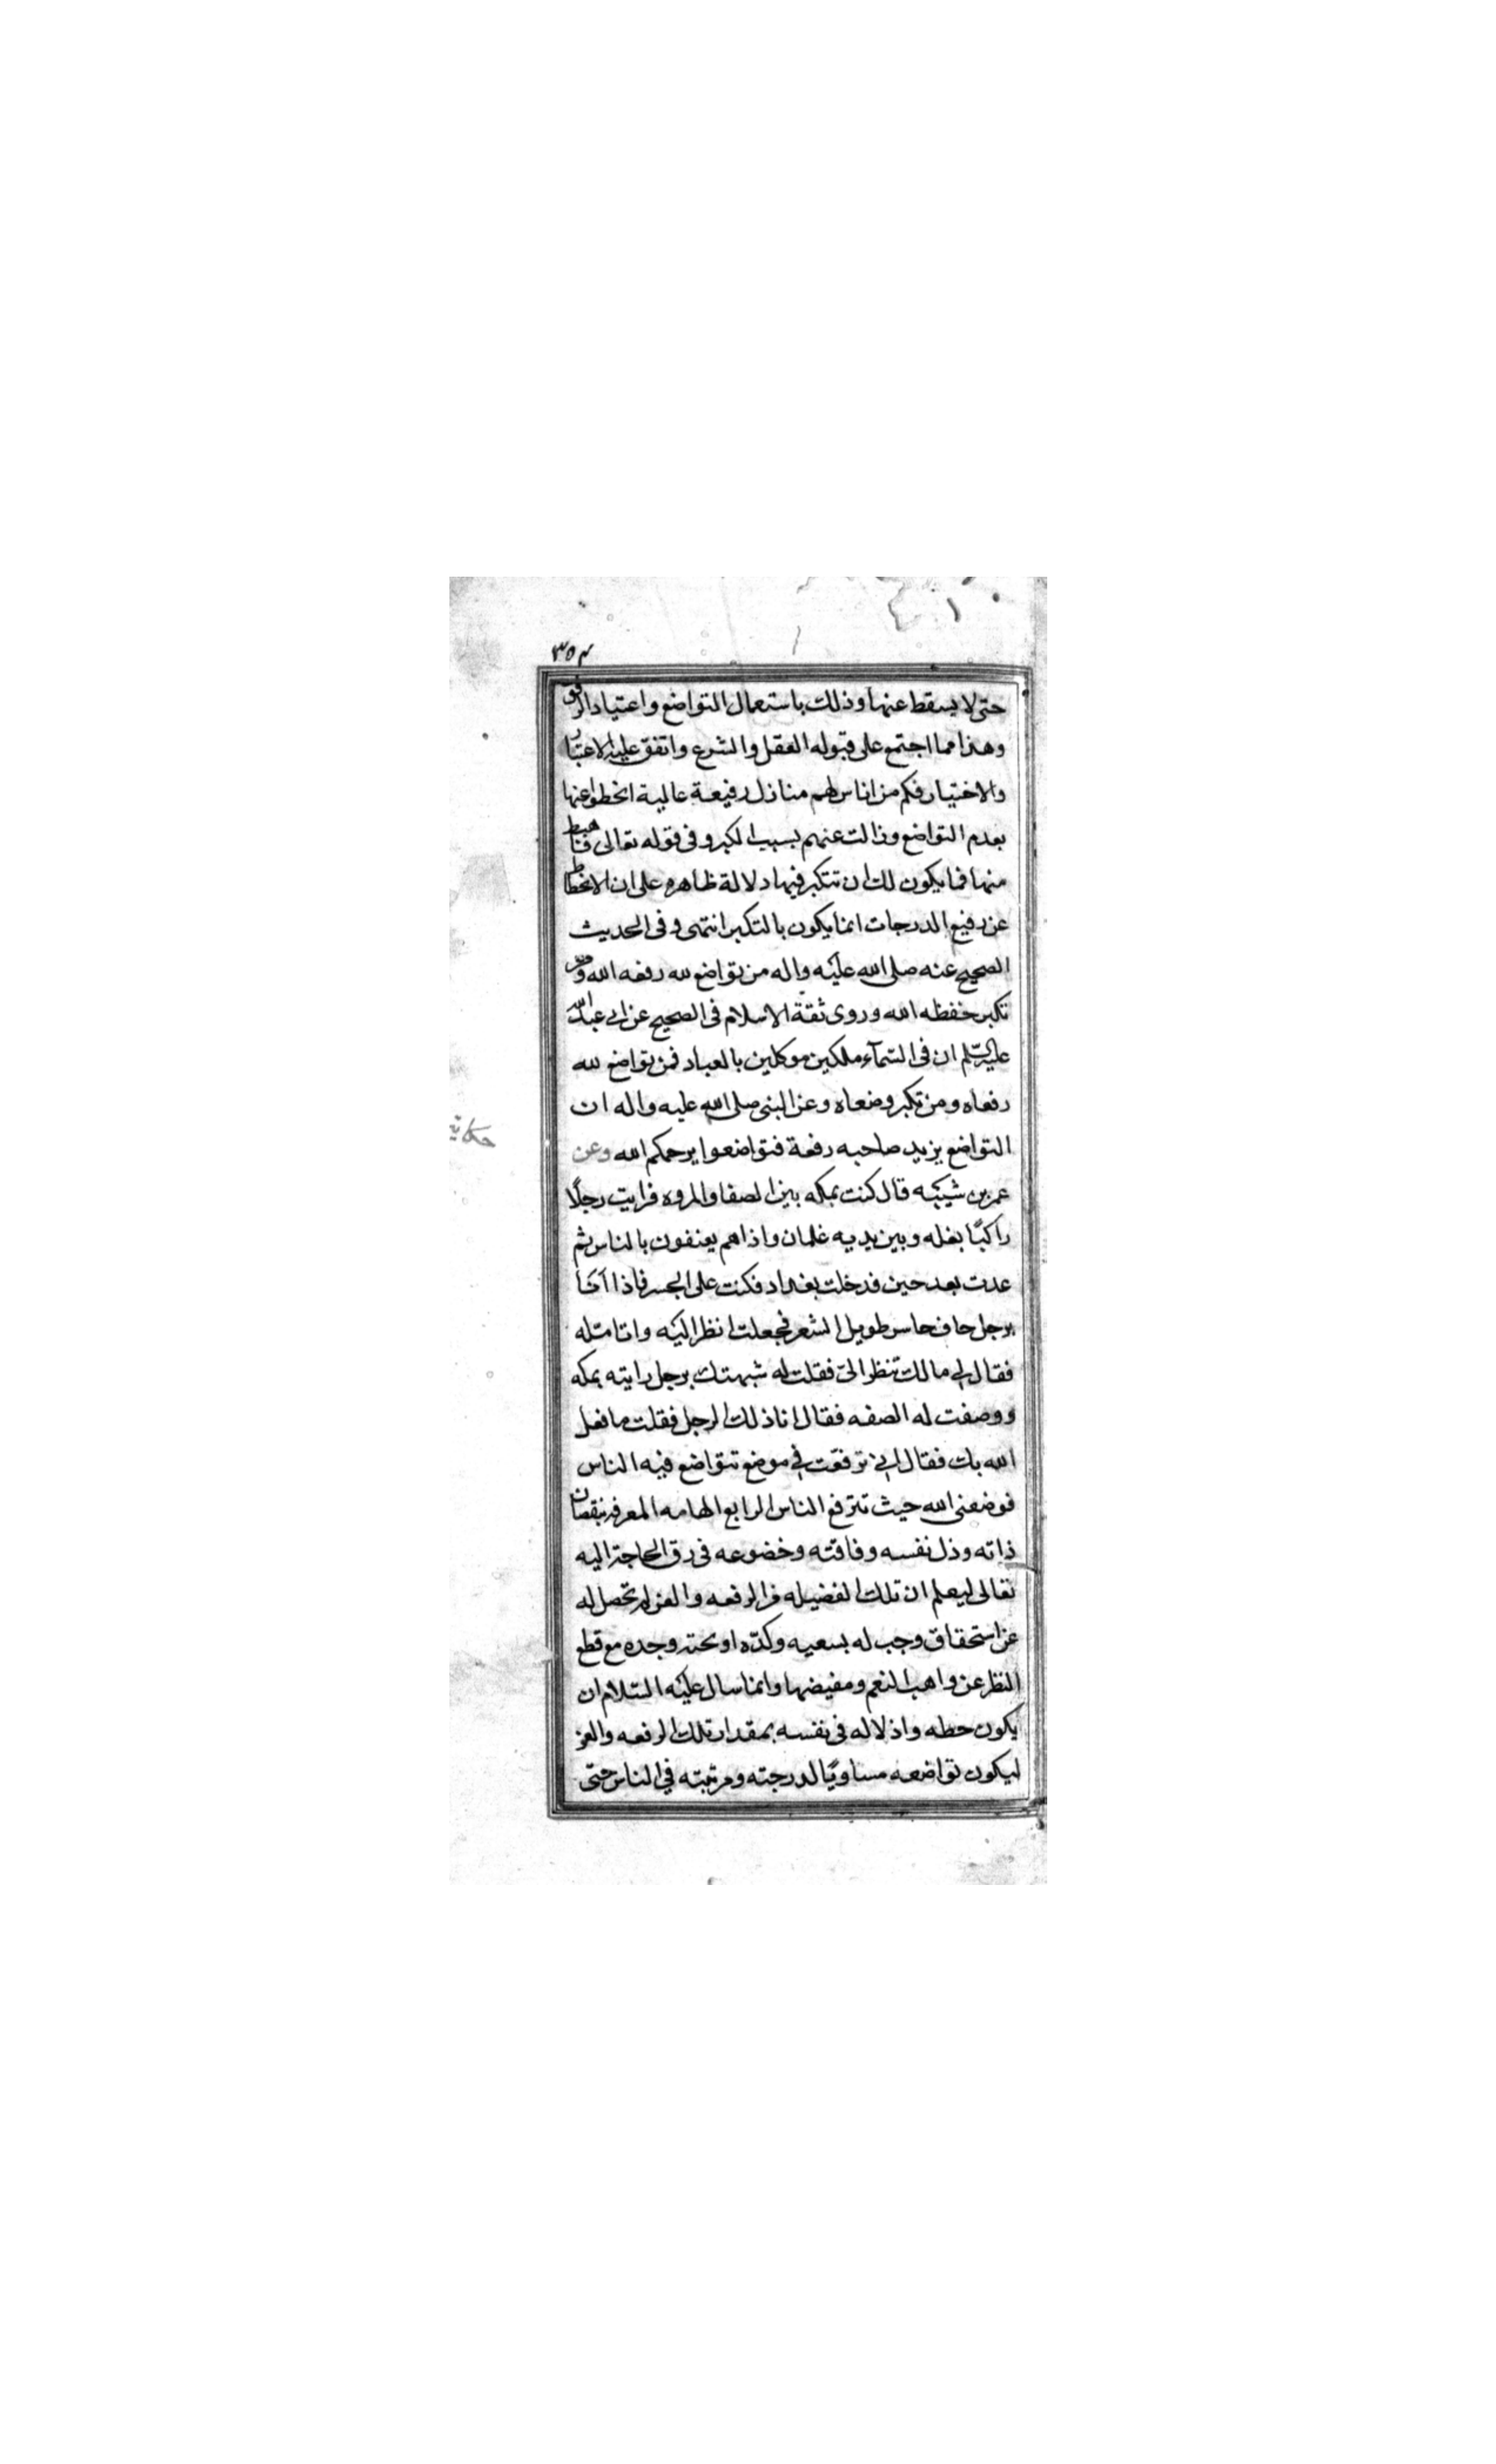 ٣٥٢
حتى لا يسقط عنها وذلك باستعمال التواضع واعتياد الرفق
وهذا مما اجتمع على قبوله العقل والشرع واتفق عليه الاعتبار
والاختيار فكم من اناس لهم منازل رفيعة عالية انحطوا عنها
بعدم التواضع وزالت عنهم بسبب الكبر وفى قوله تعالى فاهبط
منها فما يكون لك ان تتكبر فيها دلالة ظاهره على ان الانحطاط
عن رفيع الدرجات انما يكون بالتكبر انتهى وفى الحديث
الصحيح عنه صلى الله عليه واله من تواضع لله رفعه الله ومن
تكبر خفضه الله وروى ثقة الاسلام فى الصحيح عن ابى عبد الله
عليه السلم ان فى السمآء ملكين موكلين بالعباد فمن تواضع لله
رفعاه ومن تكبر وضعاه وعن النبى صلى الله عليه واله ان
التواضع يزيد صاحبه رفعة فتواضعوا يرحمكم الله وعن
حكاية
عمر بن شيبه قال كنت بمكه بين الصفا والمروه فرايت رجلًا
راكبًا بغله وبين يديه غلمان واذا هم يعنفون بالناس ثم
عدت بعد حين فدخلت بغداد فكنت على الجسر فاذا انا
برجل حاف حاسر طويل الشعر فجعلت انظر اليه واتامله
فقال لى مالك تنظر الىّ فقلت له شبهتك برجل رايته بمكه
ووصفت له الصفه فقال انا ذلك الرجل فقلت ما فعل
الله بك فقال انى ترفعت فى موضع تتواضع فيه الناس
فوضعنى الله حيث تترفع الناس الرابع الهامه المعرفه بنقصان
ذاته وذل نفسه وفاقته وخضوعه فى رق الحاجة اليه
تعالى ليعلم ان تلك الفضيله من الرفعه والعز لم تحصل له
عن استحقاق وجب له بسعيه وكدّه او بحته وجده مع قطع
النظر عن واهب النعم ومفيضها وانما سال عليه السّلام ان
يكون حطه واذلاله فى نفسه بمقدار تلك الرفعه والعز
ليكون تواضعه مساويًا لدرجته ومرتبته فى الناس حتى